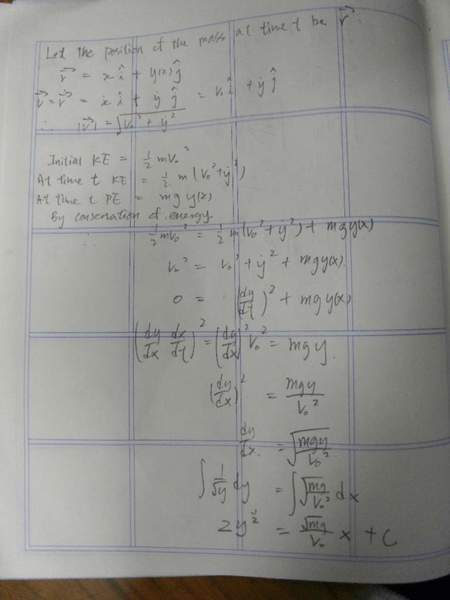 Let the position of the mass at time t be r⃗.
r⃗ = x î + y(x) ĵ
v⃗ = ṙ⃗ = ẋ î + ẏ ĵ = v₀ î + ẏ ĵ
∴ |v⃗| = √(v₀² + ẏ²)
Initial KE = ½ mv₀²
At time t KE = ½ m (v₀² + ẏ²)
At time t PE = mg y(x)
By conservation of energy
½ mv₀² = ½ m(v₀² + ẏ²) + mgy(x)
v₀² = v₀² + ẏ² + mgy(x).
0 = (dy/dt)² + mgy(x)
(dy/dx dx/dt)² = (dy/dx)² v₀² = mgy.
(dy/dx)² = mgy/v₀²
dy/dx = √(mgy/v₀²)
∫ 1/√y dy = ∫ √(mg/v₀²) dx
2y^½ = √mg/v₀ x + C